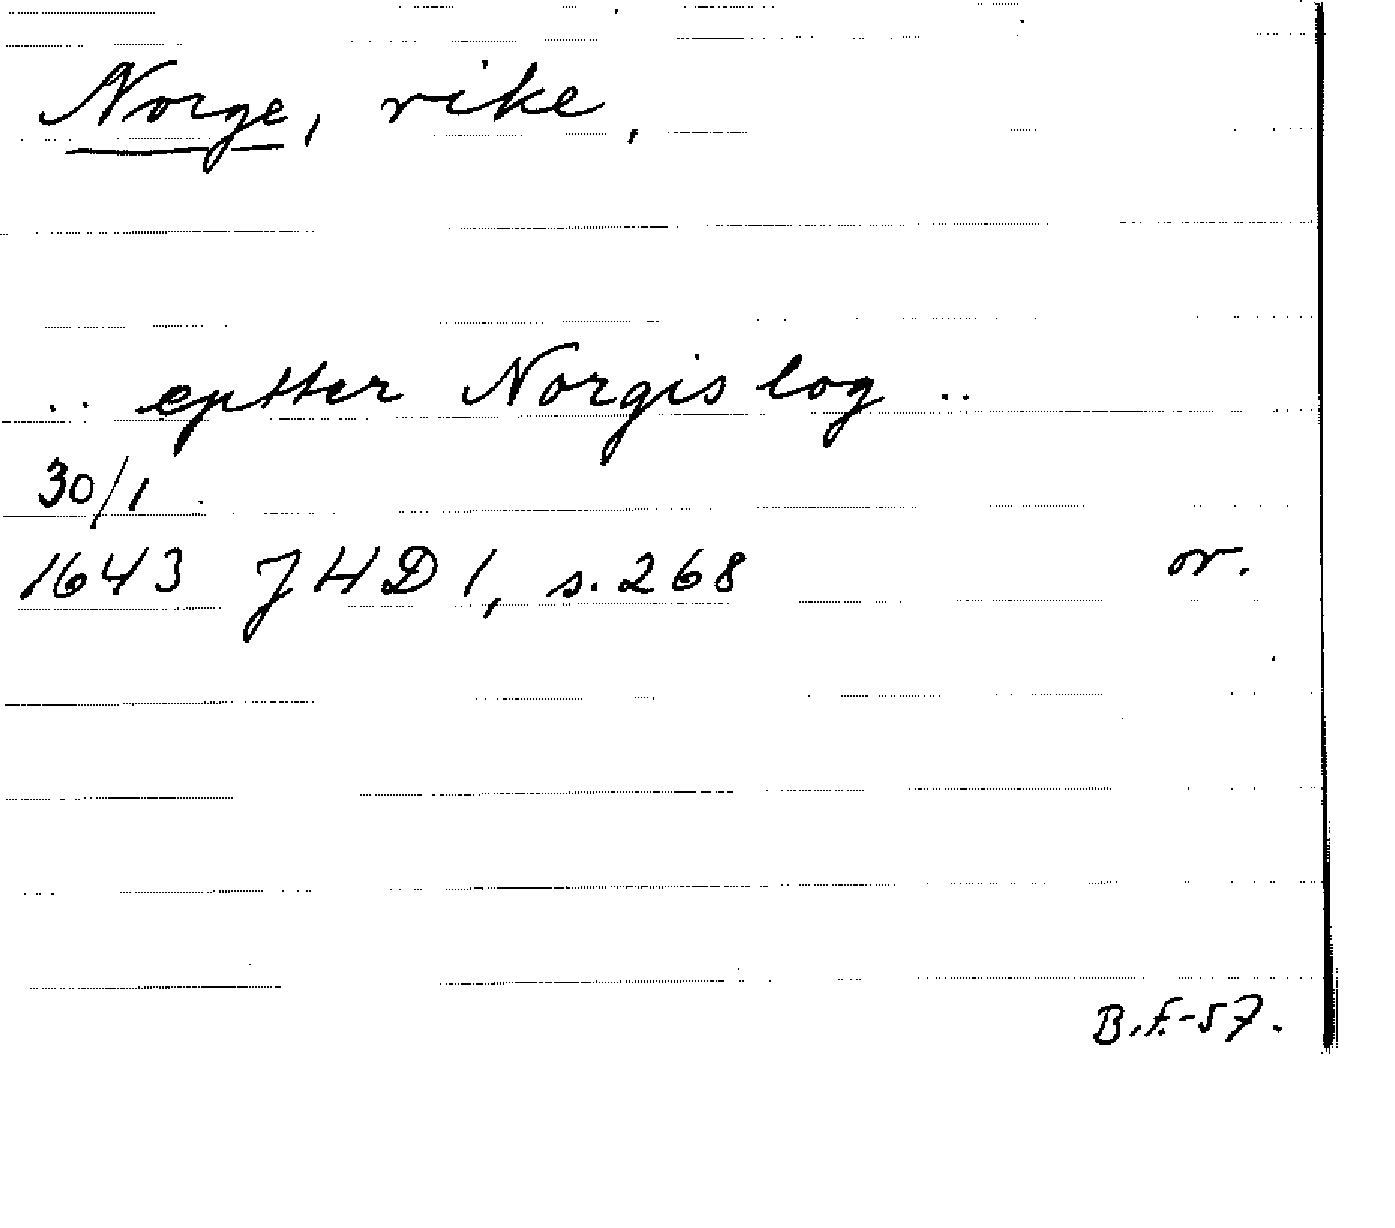 Norge, rike,
.. eptter Norgis log ..
30/1
1643 JHD 1, s. 268 or.
B.F.-57.